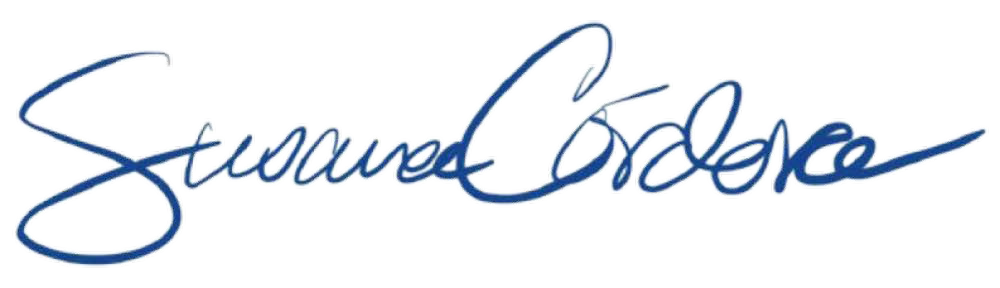 Susana Córdova